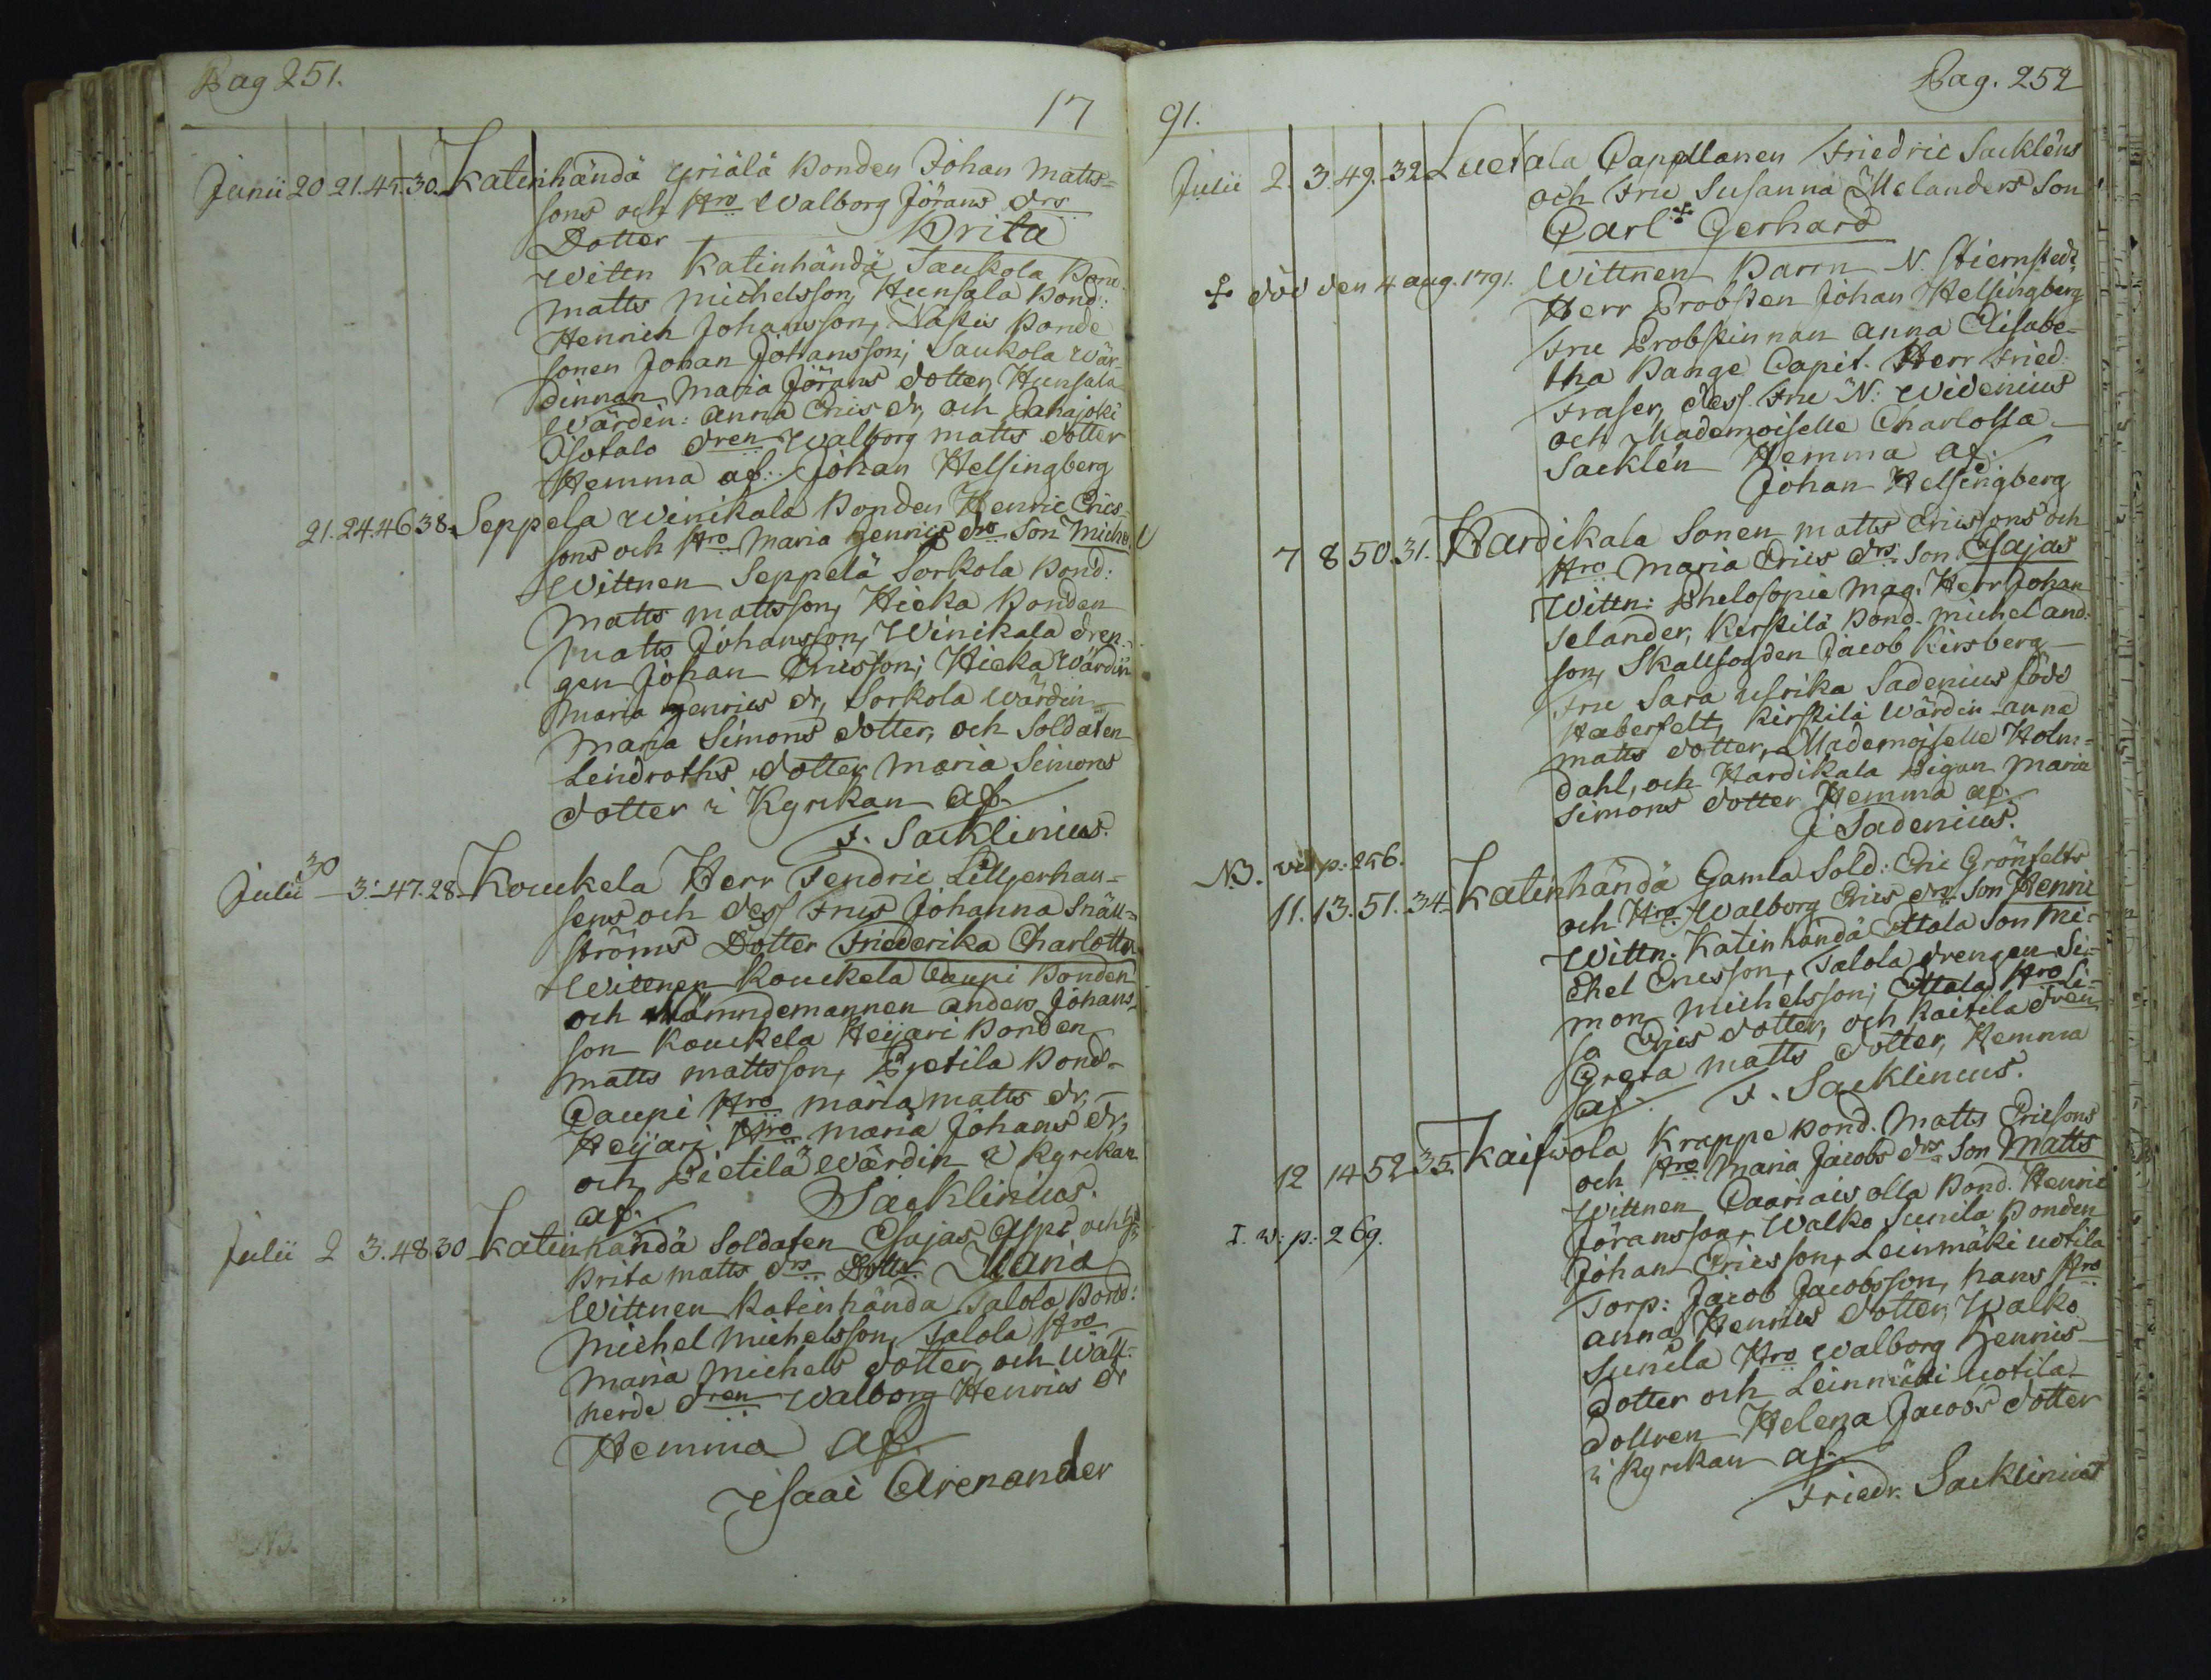 Pag 251.
17
Junii 20 21. 45. 30. Katinhändä Yriälä Bonden Johan Matts=
sons och Hro Walborg Jörans drs
Dotter Brita
Wittn Katinhändä Saukola Bond.
Matts Michelsson, Hunsala Bond:
Henrich Johansson, Näpis Bonde
sonen Johan Johansson; Saukola Wär-
dinnan Maria Jörans dotter, Hunsala
Wärdin: Anna Erics dr, och Jahajoki
Isotalo dren Walborg Matts dotter
Hemma af: Johan Helsingberg
21. 24. 46 38. Seppela Winikala Bonden Henric Erics-
sons och Hro Maria Henrics drs Son Michel
Wittnen Seppelä Sorkola Bond:
Matts Mattsson, Hicka Bonden
Matts Johansson, Winikala dren-
gen Johan Ericsson; Hicka Wärdin
Maria Henrics dr, Sorkola Wärdin
Maria Simons dotter, och Soldaten
Leindroths dotter Maria Simons
dotter i Kyrckan af.
F. Sacklinius.
Julii 30 3. 47. 28. Kouckela Herr Fendric Lilljerhan-
sens och dess Frus Johanna Snäll=
ströms Dotter Friederika Charlotta
Wittnen Kouckela Caupi Bonden
och Nämndemannen Anders Johans-
son Kouckela Heijari Bonden
Matts Mattsson, Pietila Bond-
Caupi Hro Maria Matts dr,
Heijari Hro Maria Johans dr,
och Pietilä Wärdin i Kyrckan
af. Sacklinius.
Julii 2 3. 48 30 Katinhändä Soldaten Esajas Aspe och H:
Brita Matts drs Dotter Maria
Wittnen Katinhända Talola Bond:
Michel Michelsson, Talola Hro
Maria Michels dotter, och Wall-
herde dren Walborg Henrics dr
Hemma af.
Isaac Arenander
91.
Pag. 252
Julii 2. 3. 49. 32 Luetala Capellanen Friedric Sackléns
och Fru Susanna Melanders Son
Carl Gerhard
död den 4 aug. 1791. Wittnen Baron N. Stiernstedt
Herr Probsten Johan Helsingberg
Fru Probstinnan Anna Elisabe-
tha Bange Capit. Herr Fried.
Fraser, dess Fru N: Widenius
och Mademoiselle Charlotta
Sacklén Hemma af.
Johan Helsingberg
7 8 50. 31. Hardikala Sonen Matts Ericssons och
Hro Maria Erics drs Son Esajas
Wittn: Phelosopie Mag. Herr Johan
Selander, Kerstilä Bond. Michel And.
son, Skallfogden Jacob Kirsberg
Fru Sara Ulrika Sadenius född
Haberfelt, Kirstilä Wärdin Anna
Matts dotter, Mademoiselle Holm-
dahl, och Hardikala Pigan Maria
Simons dotter Hemma af.
J Sadenius.
NB. vid p: 256.
11. 13. 51. 34. Katinhändä Gamla Sold: Eric Grönfelts
och Hro Walborg Erics drs Son Henric
Wittn. Katinhändä Ettala Son Mi-
chel Ericsson, Talola drengen Si-
mon Michelsson; Ettala Hro Li-
sa Erics dotter, och Kaitila dren
Greta Matts dotter, Hemma
af. F. Sacklinius.
12 14 52 35. Kaifwola Krappe Bond. Matts Ericsons
och Hro Maria Jacobs drs Son Matts
Wittnen Caariais olla Bond. Henric
Jöransson, Walko Sunila Bonden
I. w: p: 269.
Johan Ericsson, Leinmäki Uotila
Torp: Jacob Jacobsson, hans Hro
Anna Henrics dotter, Walko
Sunila Hro Walborg Henrics
dotter och Leinmäki Uotila
dottren Helena Jacobs dotter
i Kyrckan af.
Friedr. Sacklinius